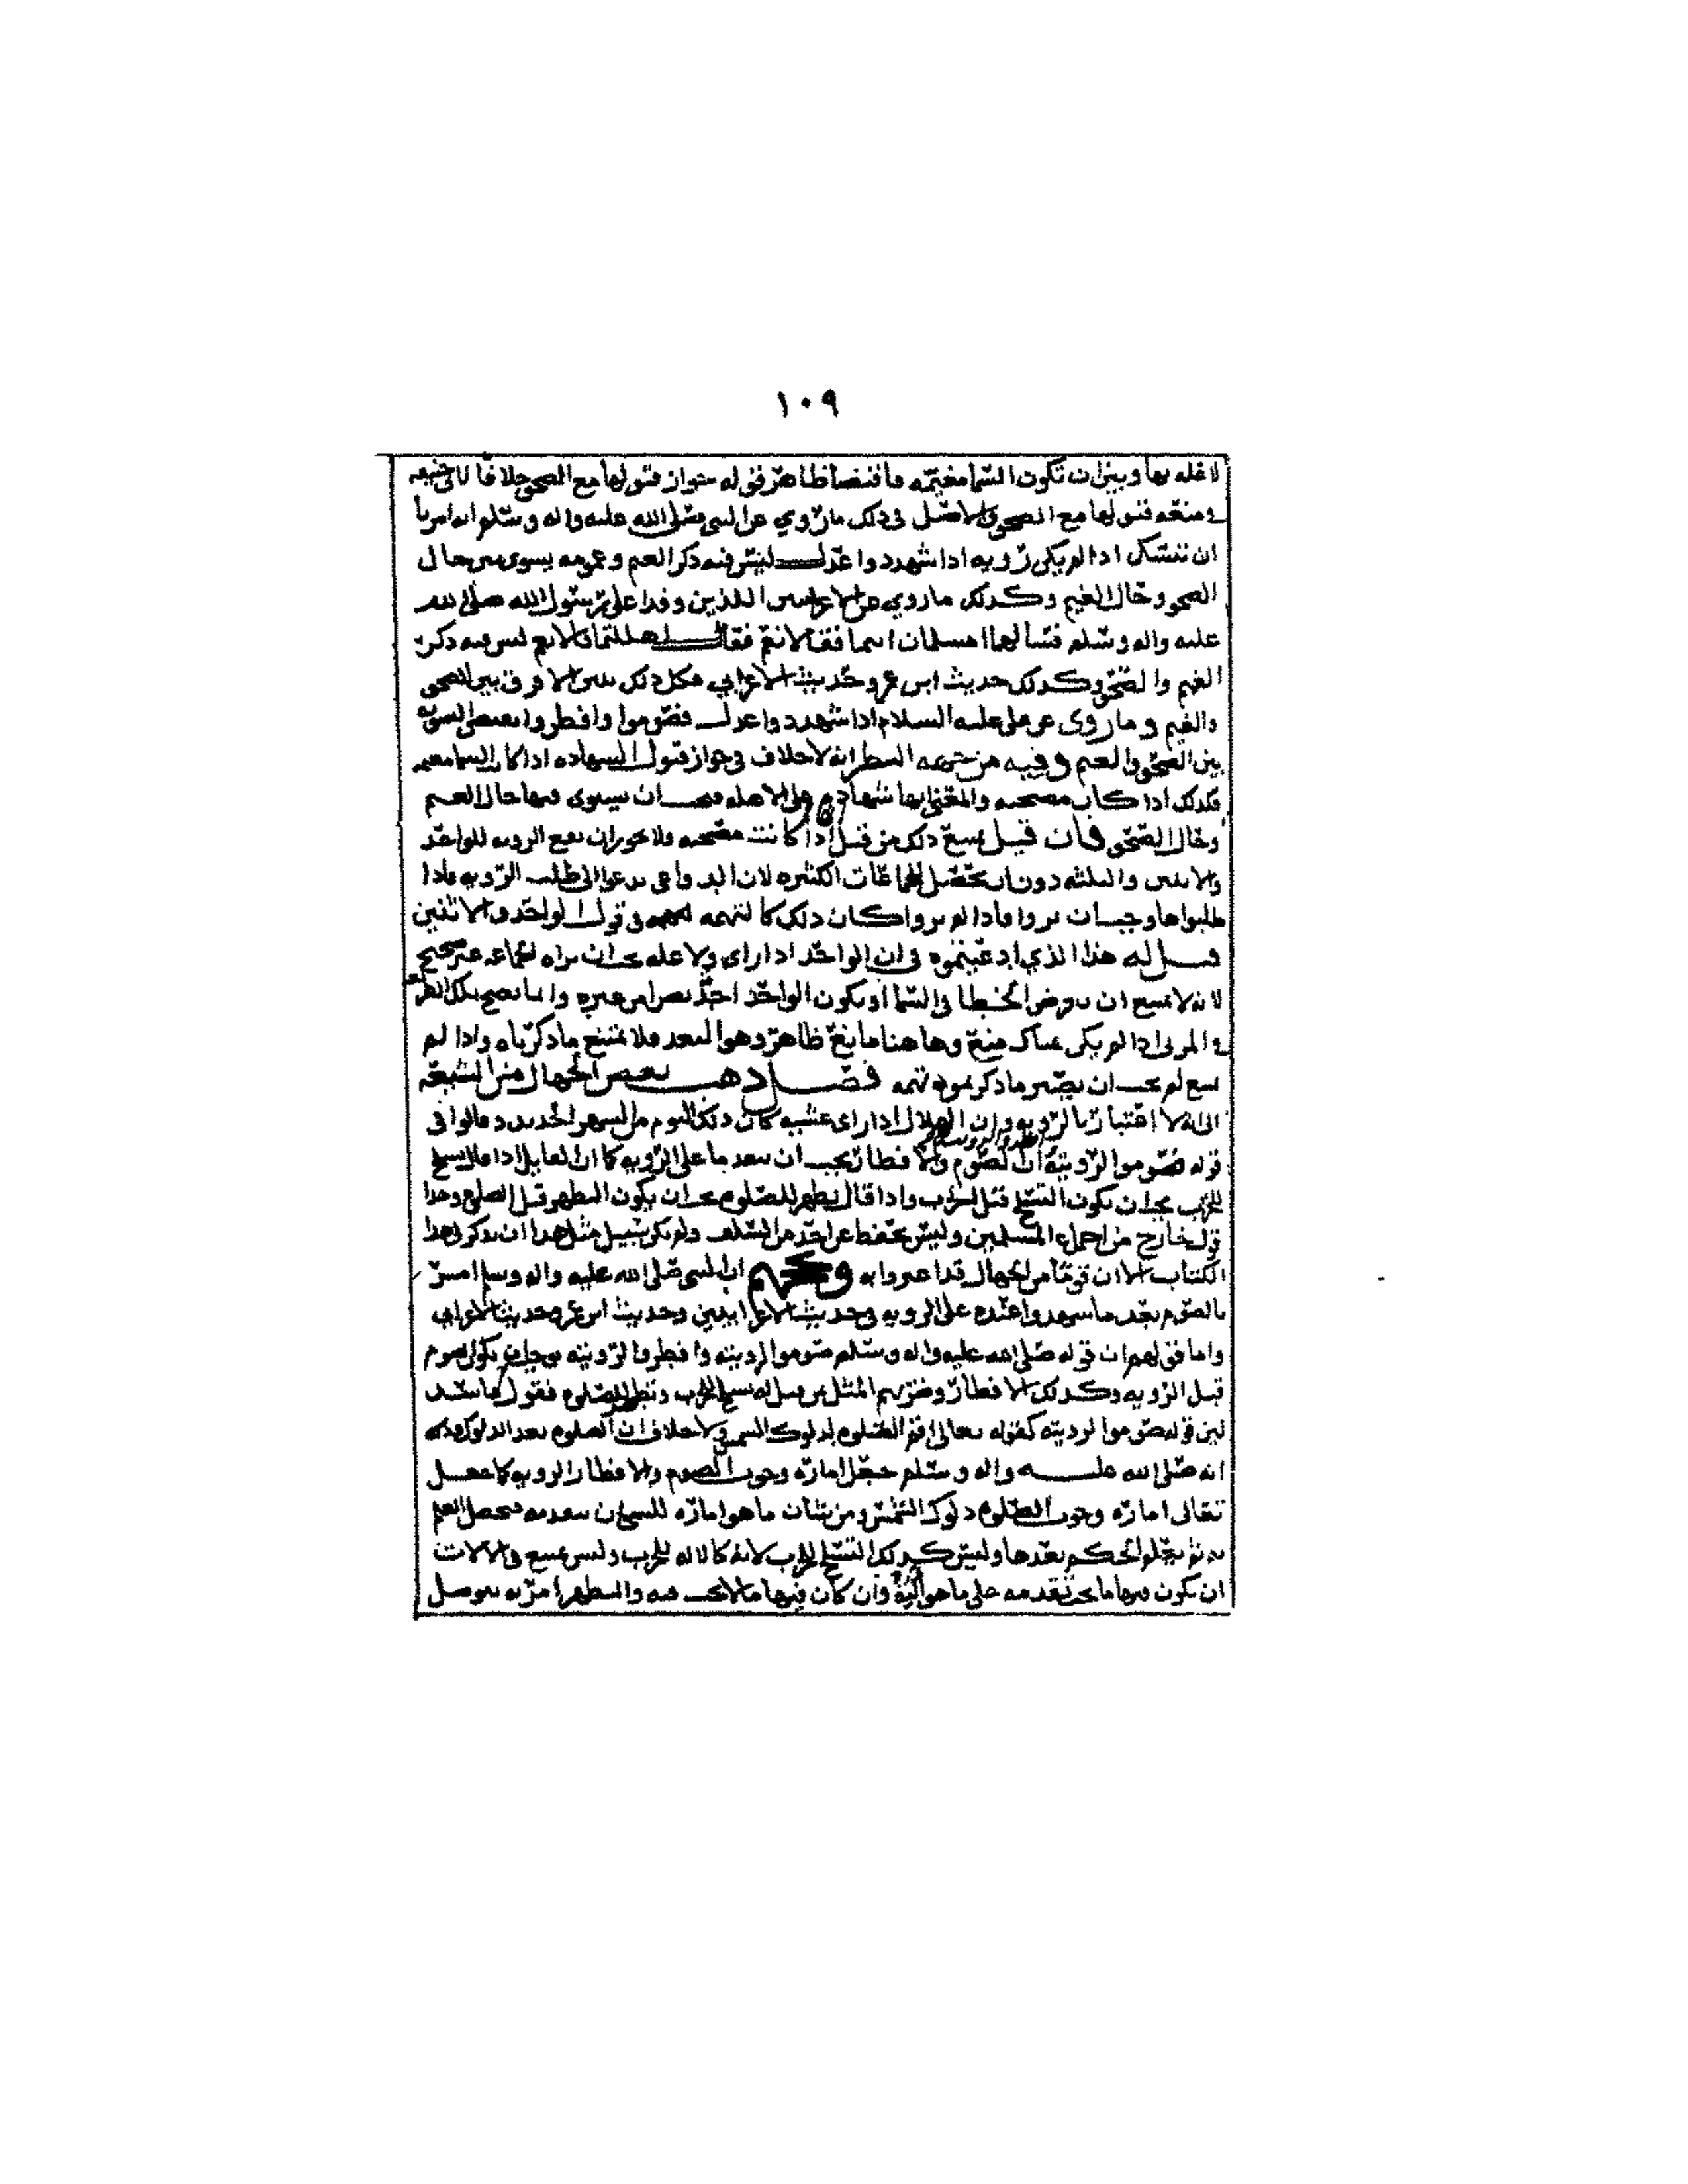 ١٠٩
لا علة بها وبين ان تكون السما مغيمة فاقتضا ظاهر قوله جواز قبولها مع الصحو خلافا لابي حنيفة
في منعه قبولها مع الصحو والاصل في ذلك ما روي عن النبي صلى الله عليه واله وسلم انه امرنا
ان ننسك اذا لم يكن رويه اذا شهد ذوا عدل ليس فيه ذكر الغيم وعمومه يسوي بين حال
الصحو وحال الغيم وكذلك ما روي عن الاعرابيين اللذين وفدا على رسول الله صلى الله
عليه واله وسلم فسالهما امسلمان انتما فقالا نعم فقال اهللتما قالا نعم ليس فيه ذكر
الغيم والصحو وكذلك حديث ابن عمر وحديث الاعرابي فكل ذلك يبين الا فرق بين الصحو
والغيم وما روى عن علي عليه السلام اذا شهد ذوا عدل فصوموا وافطروا يقتضي التسويه
بين الصحو والغيم وفيه من جهه النظر انه لا خلاف في جواز قبول الشهاده اذا كان السما مغيمه
فكذلك اذا كانت مصحيه والمعنى انها شهادة على الاهله فيجب ان يستوى فيها حال الغيم
وحال الصحو فان قيل يمنع ذلك من قبل اذا كانت مصحيه فلا يجوز ان تقع الرويه للواحد
والاثنين والثلثه دون ان تحصل للجماعات الكثيره لان الدواعي تدعوا الى طلب الرويه فاذا
طلبوها وجب ان يروا فاذا لم يروا كان ذلك كالتهمه في قول الواحد والاثنين
قيل له هذا الذي ادعيتموه في ان الواحد اذا راى ولا عله يجب ان يراه الجماعه غير صحيح
لانه لا يمتنع ان يعرض الخطا في السما او يكون الواحد احد بصرا من غيره وانما يصح ذلك
في المرئي اذا لم يكن هناك منع وها هنا مانع ظاهر وهو البعد فلا يمتنع ما ذكرناه واذا لم
يمنع لم يجب ان يصير ما ذكرتموه تهمه فصل ذهب بعض الجهال من الشيعه
الى انه لا اعتبار بالرويه وان الهلال اذا راى عشيه كان ذلك اليوم من الشهر الجديد وقالوا في
قوله صوموا لرؤيته ان الصوم والافطار يجب ان يتقدما على الرويه كما ان القايل اذا قال تسلح
للحرب يجب ان يكون التسلح قبل الحرب واذا قال تطهر للصلوه يجب ان يكون التطهر قبل الصلوه وهذا
قول خارج من اجماع المسلمين وليس يحفظ عن احد من السلف ولم يكن سبيل مثل هذا ان يذكر في هذا
الكتاب الا ان قوما من الجهال قد اغتروا به ان النبي صلى الله عليه واله وسلم امر
بالصوم بعد ما شهدوا عنده على الرويه في حديث الاعرابيين وحديث ابن عمر وحديث الاعرابي
واما قولهم ان قوله صلى الله عليه واله وسلم صوموا لرؤيته وافطروا لرؤيته يوجب ان يكون الصوم
قبل الرويه وكذلك الافطار وضربهم المثل تسلح للحرب وتطهر للصلوه فقول فاسد
لان قوله صوموا لرؤيته كقوله تعالى اقم الصلوه لدلوك الشمس ولا خلاف ان الصلوه بعد الدلوك
انه صلى الله عليه واله وسلم جعل اماره وجوب الصوم والافطار الرويه كما جعل
تعالى اماره وجوب الصلوه دلوك الشمس ومن شان ما هو اماره للشي ان يتقدمه فيحصل العلم
به ثم يتعلق الحكم بعدها وليس كذلك التسلح للحرب لانه كالاله للحرب وليس يمتنع في الالات
ان يكون فيها ما يجب تقدمه على ما هو آلة وان كان فيها ما لا يجب فيه والتطهر امر به يتوصل